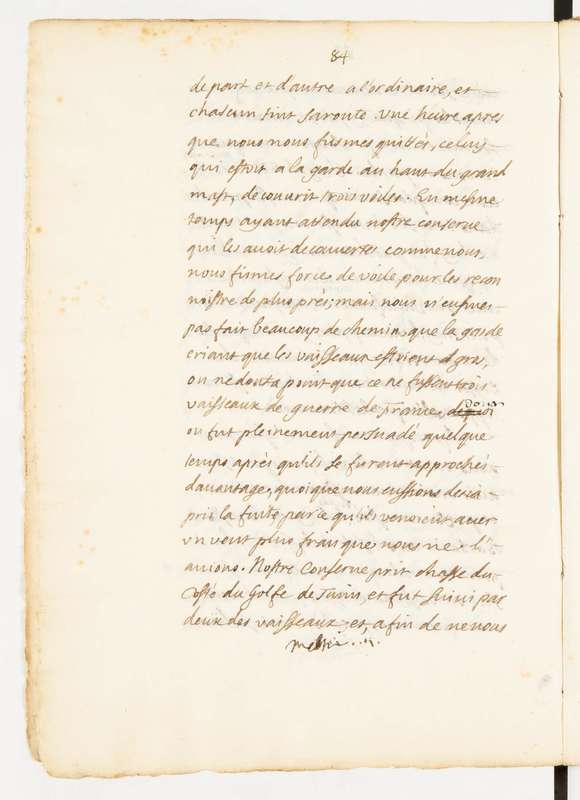 84
de part et d'autre a l'ordinaire, et
chascun tint sa route. Une heure apres
que nous nous fusmes quittés, celuy
qui estoit a la garde au haut du grand
mast, découvrit trois voiles. En mesme
temps ayant attendu nostre conserve
qui les avoit decouvertes comme nous,
nous fismes force de voile pour les recon
noistre de plus prés; mais nous n'eusmes
pas fait beaucoup de chemin, que la garde
criant que les vaisseaux estoient gros,
on ne douta point que ce ne fussent trois
vaisseaux de guerre de France, dont
on fut pleinement persuadé quelque
temps aprés qu'ils se furent approchés
davantage, quoique nous eussions desia
pris la fuite, parce qu'ils venoient avec
un vent plus frais que nous ne l'
avions. Nostre Conserve prit chasse du
costé du Golfe de Tunis, et fut suivi par
deux des vaisseaux; et, afin de ne nous